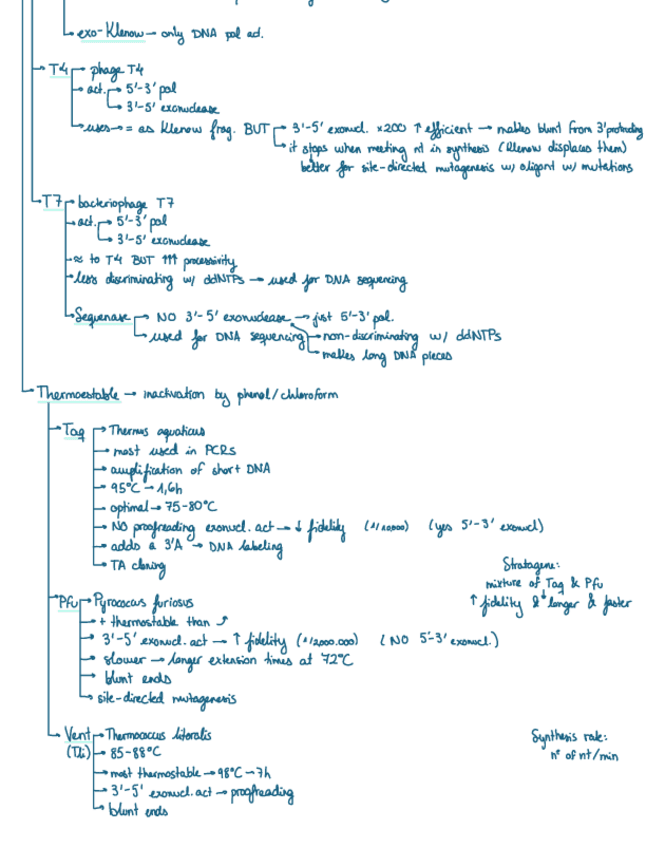 exo-Klenow → only DNA pol ad.
T4 → phage T4
act. → 5'-3' pol
→ 3'-5' exonuclease
uses → = as Klenow frag. BUT → 3'-5' exonucl. x200 ↑ efficient → makes blunt from 3' protruding
it stops when meeting nt in synthesis (Klenow displaces them)
better for site-directed mutagenesis w/ oligont w/ mutations
T7 → bacteriophage T7
act. → 5'-3' pol
→ 3'-5' exonuclease
≈ to T4 BUT ↑↑↑ processivity
less discriminating w/ ddNTPs → used for DNA sequencing
Sequenase → NO 3'-5' exonuclease → just 5'-3' pol.
used for DNA sequencing → non-discriminating w/ ddNTPs
→ makes long DNA pieces
Thermoestable → inactivation by phenol/chloroform
Taq → Thermus aquaticus
→ most used in PCRs
→ amplification of short DNA
→ 95°C → 1,6h
→ optimal → 75-80°C
→ NO proofreading exonucl. act → ↓ fidelity (1/10000) (yes 5'-3' exonucl)
→ adds a 3'A → DNA labeling
→ TA cloning
Stratagene:
mixture of Taq & Pfu
↑ fidelity & longer & faster
Pfu → Pyrococcus furiosus
→ + thermostable than ⤴
→ 3'-5' exonucl. act → ↑ fidelity (1/2000.000) (NO 5'-3' exonucl.)
→ slower → longer extension times at 72°C
→ blunt ends
→ site-directed mutagenesis
Vent → Thermococcus litoralis
(Tli) → 85-88°C
→ most thermostable → 98°C → 7h
→ 3'-5' exonucl. act → proofreading
→ blunt ends
Synthesis rate:
nº of nt/min